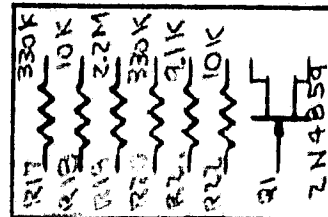 R17 330K
R18 10K
R19 2.2M
R20 330K
R21 9.1K
R22 10K
Q1 2N4859